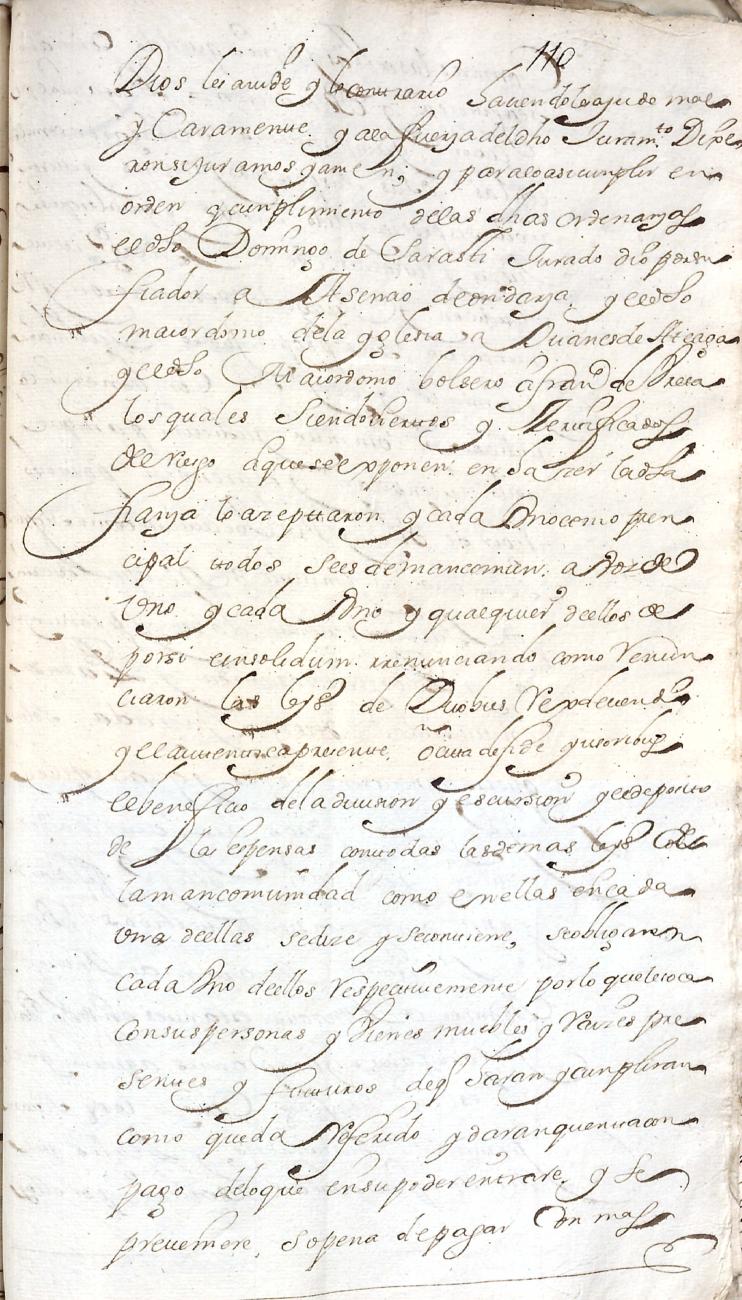 110
Dios les aiude y lo contrario haciendo los ajudo mal
y Caramente y a la fuerza del dho Juram.to Dixe
ron si juramos y amen, y para lo asi cunplir en
orden y cunplimiento de las dhas ordenanzas
el dho Domingo de Sarasti Jurado dio por su
fiador a Asenao de ondarza, y el dho
maiordomo de la yglesia a Juanes de Ateaga
y el dho Maiordomo bolsero a fran.co de
los quales siendo ciertos y Zertificados
del riesgo a que se exponen en hazer la dha
fianza lo azeptaron y cada Uno como prin
cipal todos seis de mancomun a voz de
Uno y cada Uno y qualquier dellos de
por si e insolidum rrenunciando como renun
ciaron las leyes de Duobus Rex devendi
y el autentica presente, ocita de fide yusoribus
el beneficio de la division y escursion y el deposito
de las espensas con todas las demas leyes de
la mancomunidad como en ellas en cada
una dellas se dize y se contiene, se obligaron
cada Uno dellos respectivemente por lo que le toca
con sus personas y Bienes muebles y raizes pre
sentes y futturos de q haran y cunpliran
como queda Referido y daran quenta con
pago de lo que en su poder entrare, y se
preveniere, so pena de pagar Con mas